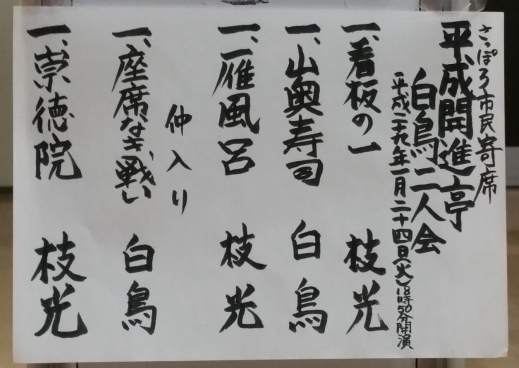 さっぽろ市民寄席
平成開進亭
白鳥二人会
平成二十九年一月二十四日(火)18時50分開演
一、看板の一 枝光
一、山奥寿司 白鳥
一、雁風呂 枝光
仲入り
一、座席なき戦い 白鳥
一、崇徳院 枝光